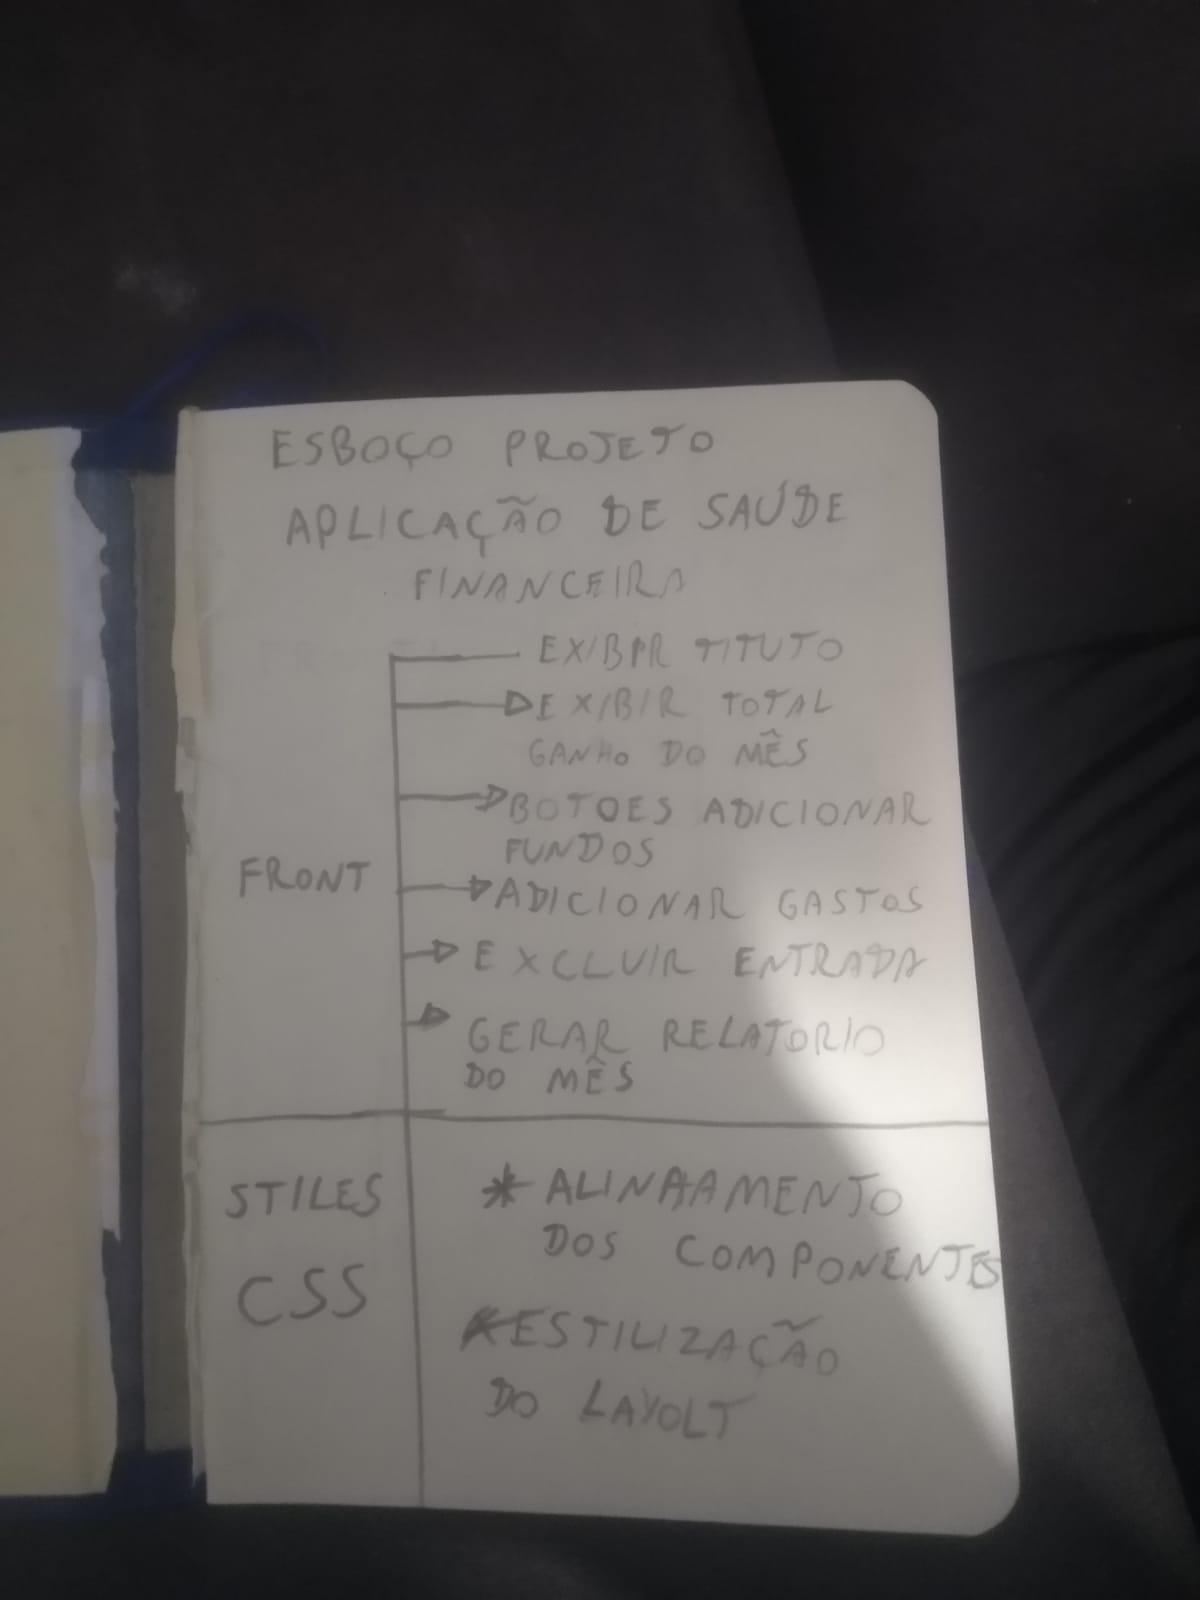 ESBOÇO PROJETO
APLICAÇÃO DE SAÚDE
FINANCEIRA
EXIBIR TITUTO
EXIBIR TOTAL
GANHO DO MÊS
BOTOES ADICIONAR
FUNDOS
FRONT
ADICIONAR GASTOS
EXCLUIR ENTRADA
GERAR RELATORIO
DO MÊS
STILES
CSS
* ALINHAMENTO
DOS COMPONENTES
* ESTILIZAÇÃO
DO LAYOLT